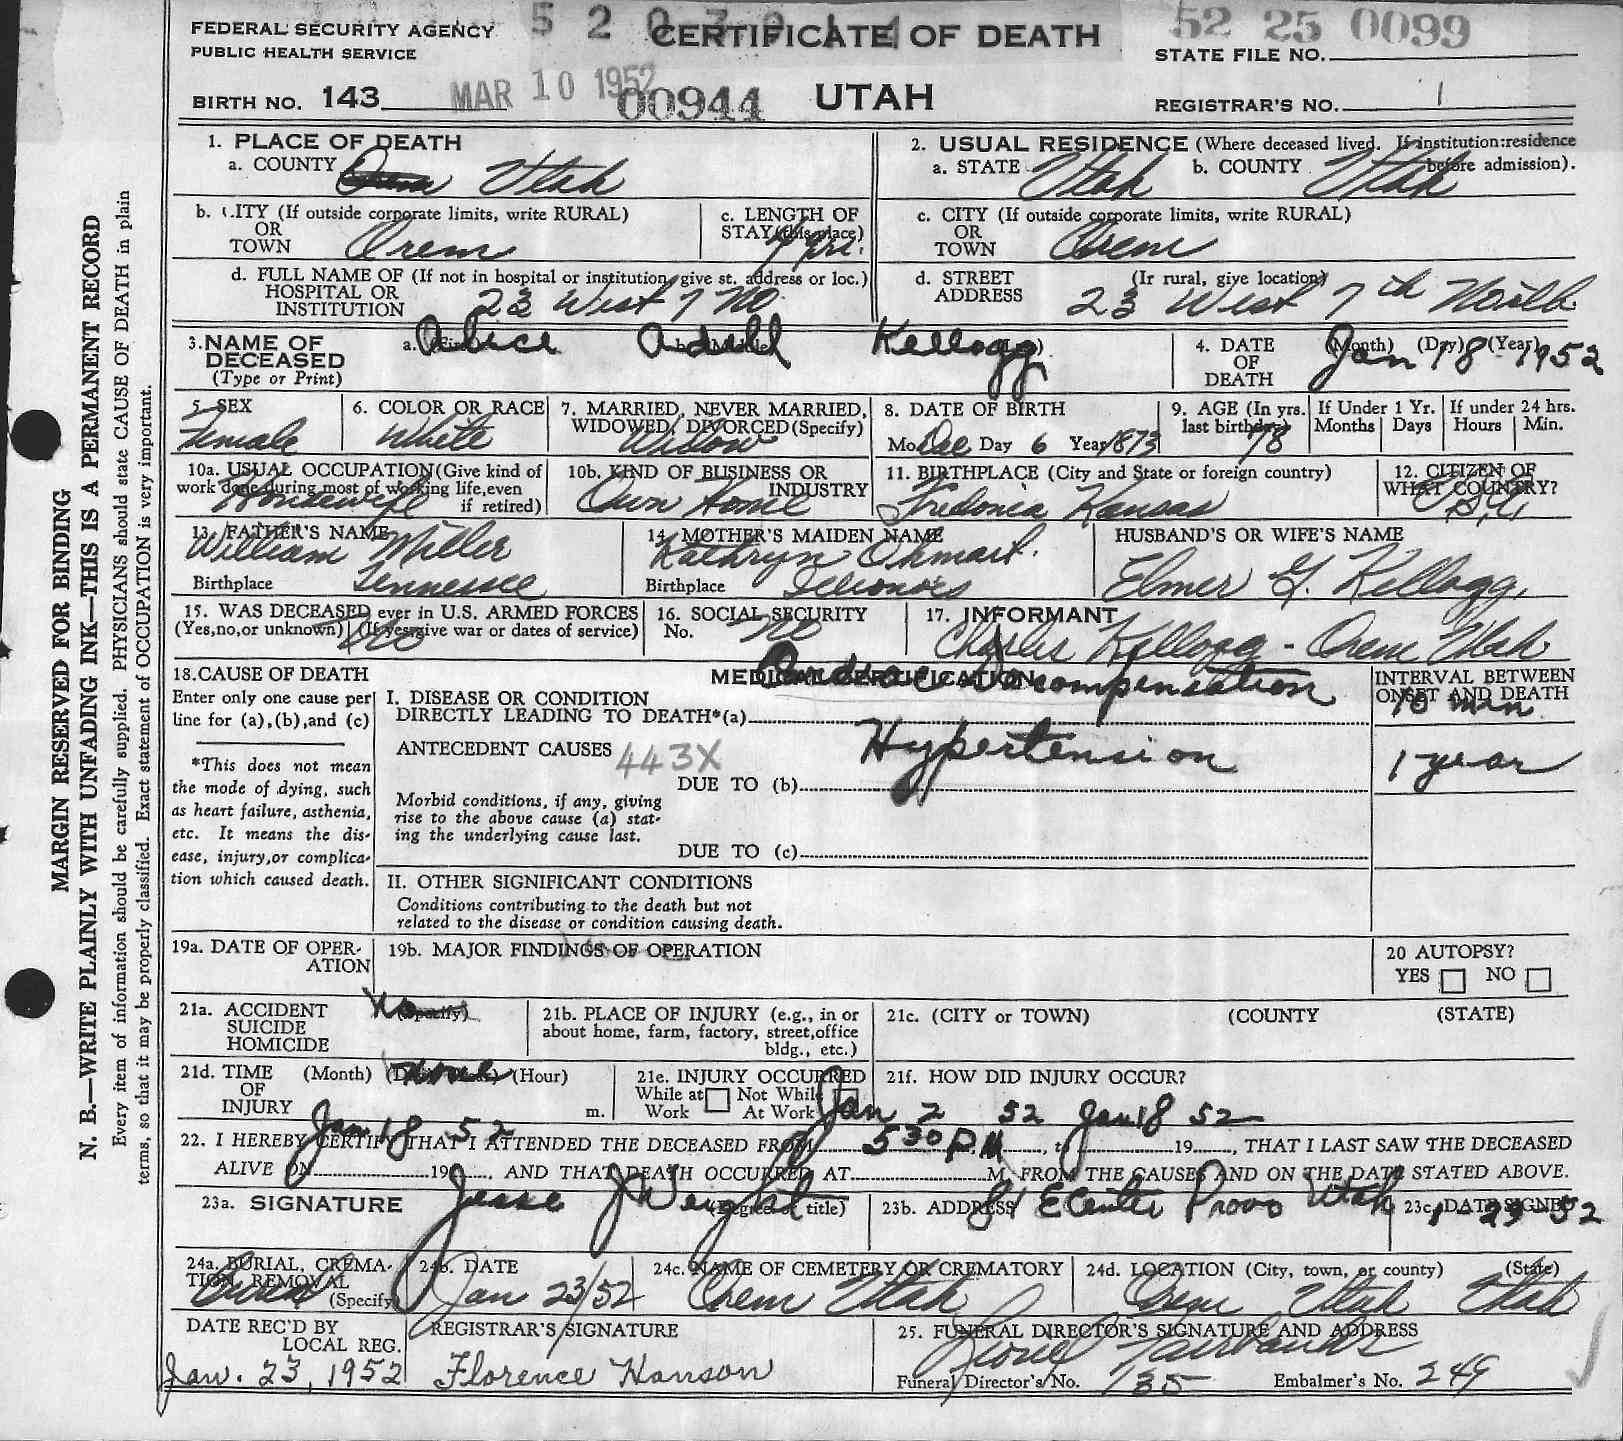 5 2 0 3 0 1 4
FEDERAL SECURITY AGENCY
PUBLIC HEALTH SERVICE
CERTIFICATE OF DEATH
52 25 0099
STATE FILE NO.
BIRTH NO. 143
MAR 10 1952
00944
UTAH
REGISTRAR'S NO. 1
1. PLACE OF DEATH
a. COUNTY Orem Utah
2. USUAL RESIDENCE (Where deceased lived. If institution: residence before admission).
a. STATE Utah b. COUNTY Utah
b. CITY (If outside corporate limits, write RURAL)
OR
TOWN Orem
c. LENGTH OF
STAY (this place)
c. CITY (If outside corporate limits, write RURAL)
OR
TOWN Orem
d. FULL NAME OF (If not in hospital or institution, give st. address or loc.)
HOSPITAL OR
INSTITUTION 23 West 7 No.
d. STREET (Ir rural, give location)
ADDRESS 23 West 7th North
3. NAME OF
DECEASED
(Type or Print)
a. (First) Alice b. (Middle) Adell Kellogg
4. DATE (Month) (Day) (Year)
OF
DEATH Jan 18 - 1952
5. SEX
Female
6. COLOR OR RACE
White
7. MARRIED, NEVER MARRIED,
WIDOWED, DIVORCED (Specify)
Widow
8. DATE OF BIRTH
Mo. Dec Day 6 Year 1873
9. AGE (In yrs.
last birthday) 78
If Under 1 Yr.
Months Days
If under 24 hrs.
Hours Min.
10a. USUAL OCCUPATION (Give kind of
work done during most of working life, even
if retired)
Housewife
10b. KIND OF BUSINESS OR
INDUSTRY
Own Home
11. BIRTHPLACE (City and State or foreign country)
Fredonia Kansas
12. CITIZEN OF
WHAT COUNTRY?
13. FATHER'S NAME
William Miller
Birthplace Tennessee
14. MOTHER'S MAIDEN NAME
Kathryn Ohmart.
Birthplace Illinois
HUSBAND'S OR WIFE'S NAME
Elmer G. Kellogg,
15. WAS DECEASED ever in U.S. ARMED FORCES
(Yes, no, or unknown) (If yes, give war or dates of service)
No
16. SOCIAL SECURITY
No. no
17. INFORMANT
Charles Kellogg - Orem Utah
18. CAUSE OF DEATH
Enter only one cause per
line for (a), (b), and (c)
*This does not mean
the mode of dying, such
as heart failure, asthenia,
etc. It means the dis-
ease, injury, or complica-
tion which caused death.
MEDICAL CERTIFICATION
I. DISEASE OR CONDITION
DIRECTLY LEADING TO DEATH*(a)
Cardiac Decompensation
INTERVAL BETWEEN
ONSET AND DEATH
10 min
ANTECEDENT CAUSES 443X
DUE TO (b) Hypertension
1 year
Morbid conditions, if any, giving
rise to the above cause (a) stat-
ing the underlying cause last.
DUE TO (c)
II. OTHER SIGNIFICANT CONDITIONS
Conditions contributing to the death but not
related to the disease or condition causing death.
19a. DATE OF OPER-
ATION
19b. MAJOR FINDINGS OF OPERATION
20 AUTOPSY?
YES NO
21a. ACCIDENT
SUICIDE
HOMICIDE
(Specify) No
21b. PLACE OF INJURY (e.g., in or
about home, farm, factory, street, office
bldg., etc.)
21c. (CITY or TOWN) (COUNTY (STATE)
21d. TIME (Month) (Day) (Year) (Hour)
OF
INJURY m.
none
21e. INJURY OCCURRED
While at Not While
Work At Work
21f. HOW DID INJURY OCCUR?
Jan 2 52 Jan 18 52
22. I HEREBY CERTIFY THAT I ATTENDED THE DECEASED FROM , to 19 , THAT I LAST SAW THE DECEASED
Jan 18 52 5 30 P.M
ALIVE ON 19 , AND THAT DEATH OCCURRED AT M, FROM THE CAUSES AND ON THE DATE STATED ABOVE.
23a. SIGNATURE (Degree or title)
Jesse J Weight
23b. ADDRESS
E Center Provo Utah
23c. DATE SIGNED
1-23-52
24a. BURIAL, CREMA-
TION, REMOVAL
(Specify)
Burial
24b. DATE
Jan 23/52
24c. NAME OF CEMETERY OR CREMATORY
Orem Utah
24d. LOCATION (City, town, or county) (State)
Orem Utah Utah
DATE REC'D BY
LOCAL REG.
Jan. 23, 1952
REGISTRAR'S SIGNATURE
Florence Hanson
25. FUNERAL DIRECTOR'S SIGNATURE AND ADDRESS
Lionel Fairbanks
Funeral Director's No. 135 Embalmer's No. 249
MARGIN RESERVED FOR BINDING
N. B.—WRITE PLAINLY WITH UNFADING INK—THIS IS A PERMANENT RECORD
Every item of information should be carefully supplied. PHYSICIANS should state CAUSE OF DEATH in plain
terms, so that it may be properly classified. Exact statement of OCCUPATION is very important.